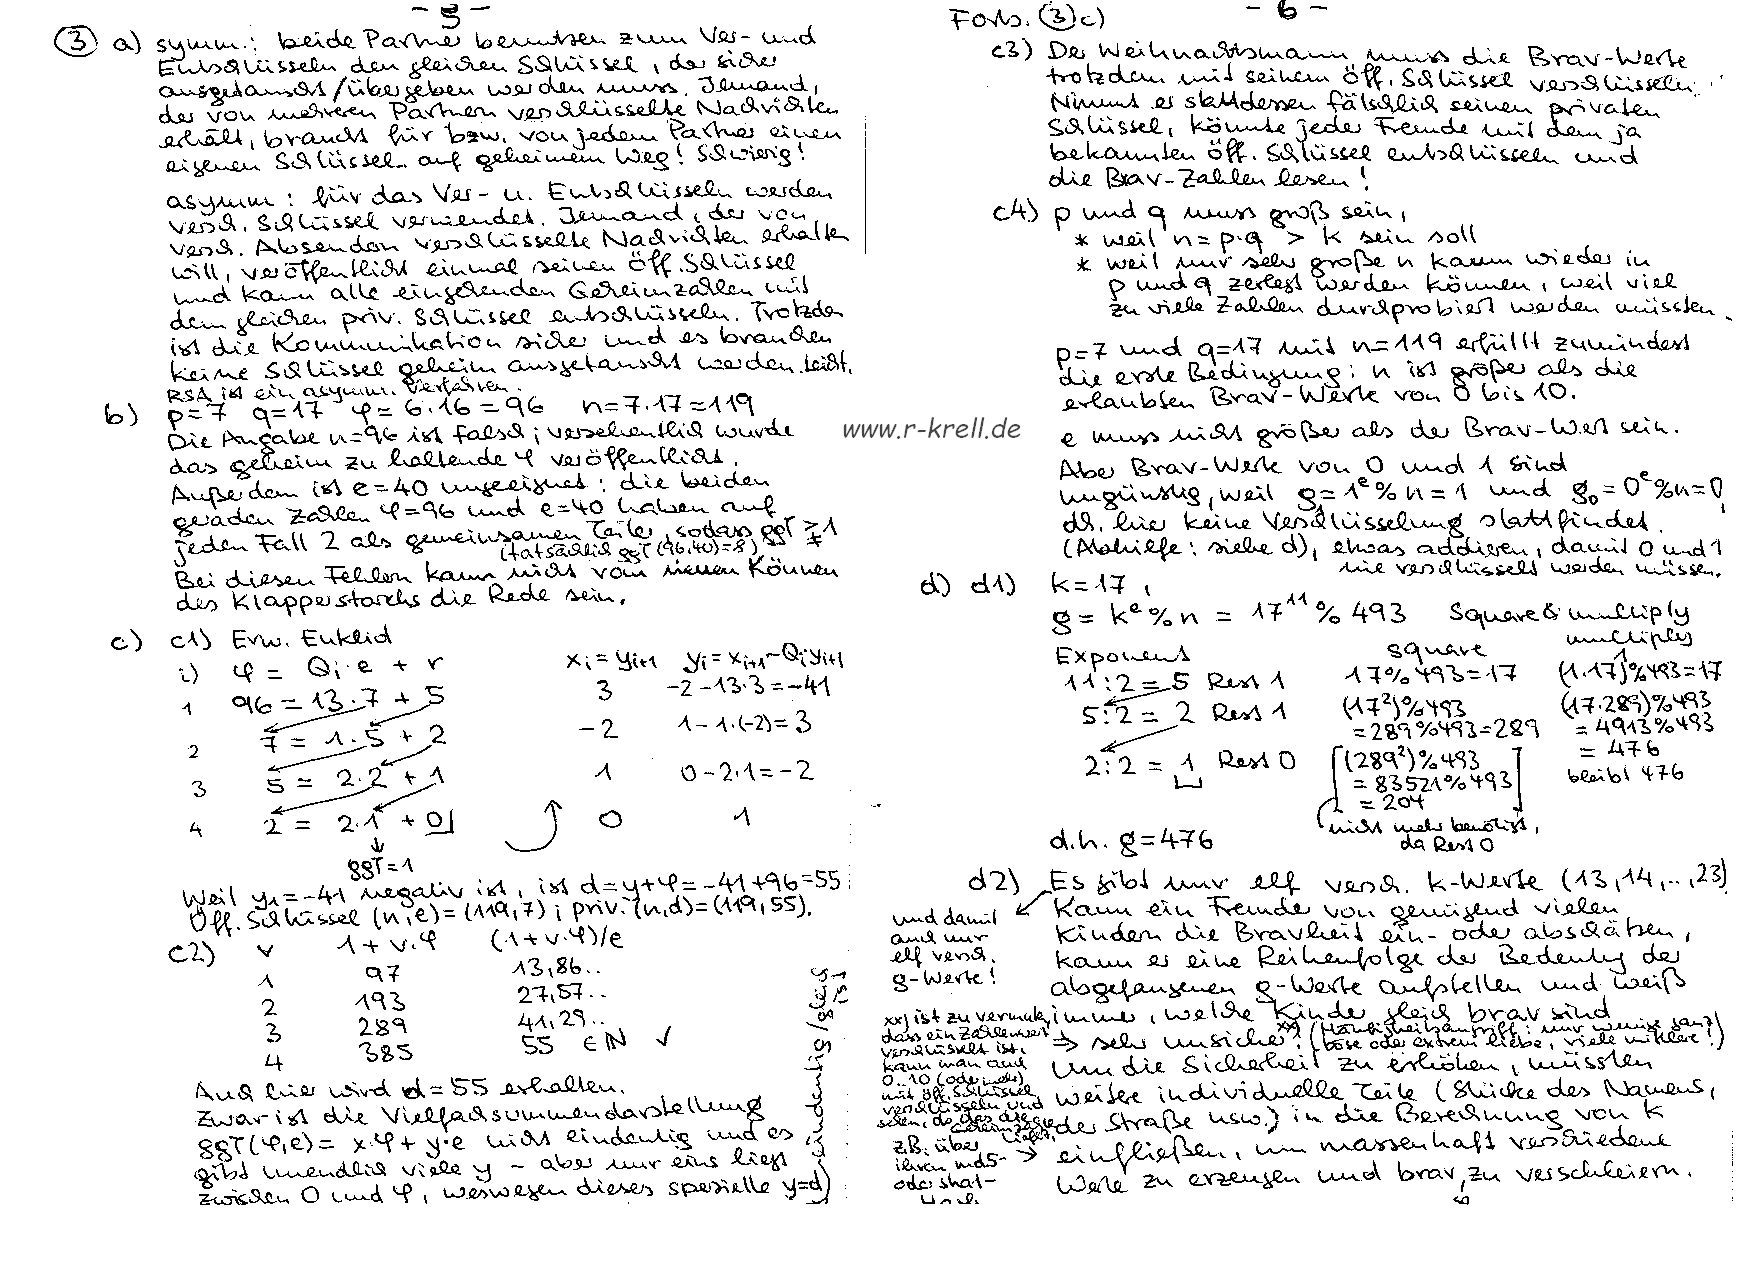 - 5 -
③ a) symm.: beide Partner benutzen zum Ver- und
Entschlüsseln den gleichen Schlüssel, der sicher
ausgetauscht/übergeben werden muss. Jemand,
der von mehreren Partnern verschlüsselte Nachrichten
erhält, braucht für bzw. von jedem Partner einen
eigenen Schlüssel auf geheimem Weg! Schwierig!
asymm: für das Ver- u. Entschlüsseln werden
versch. Schlüssel verwendet. Jemand, der von
versch. Absendern verschlüsselte Nachrichten erhalten
will, veröffentlicht einmal seinen öff. Schlüssel
und kann alle eingehenden Geheimzahlen mit
dem gleichen priv. Schlüssel entschlüsseln. Trotzdem
ist die Kommunikation sicher und es brauchen
keine Schlüssel geheim ausgetauscht werden. Leicht.
RSA ist ein asymm. Verfahren.
b) p=7 q=17 φ=6·16=96 n=7·17=119
Die Angabe n=96 ist falsch; versehentlich wurde
das geheim zu haltende φ veröffentlicht.
Außerdem ist e=40 ungeeignet: die beiden
geraden Zahlen φ=96 und e=40 haben auf
jeden Fall 2 als gemeinsamen Teiler, sodass ggT ≩ 1
(tatsächlich ggT(96,40)=8)
Bei diesen Fehlern kann nicht vom neuen Können
des Klapperstorchs die Rede sein.
c) c1) Erw. Euklid
i) φ = Qi·e + r xi=yi+1 yi=xi+1-Qi·yi+1
1 96 = 13·7 + 5 3 -2-13·3=-41
2 7 = 1·5 + 2 -2 1-1·(-2)=3
3 5 = 2·2 + 1 1 0-2·1=-2
4 2 = 2·1 + 0 0 1
ggT=1
Weil y1=-41 negativ ist, ist d=y+φ=-41+96=55;
Öff. Schlüssel (n,e)=(119,7); priv. (n,d)=(119,55).
c2) v 1+v·φ (1+v·φ)/e
1 97 13,86..
2 193 27,57..
3 289 41,29..
4 385 55 ∈ℕ ✓
Auch hier wird d=55 erhalten.
Zwar ist die Vielfachsummendarstellung
ggT(φ,e)= x·φ+y·e nicht eindeutig und es
gibt unendlich viele y – aber nur eins liegt
zwischen 0 und φ, weswegen dieses spezielle y=d
eindeutig/gleich
ist
www.r-krell.de
- 6 -
Forts. ③ c)
c3) Der Weihnachtsmann muss die Brav-Werte
trotzdem mit seinem öff. Schlüssel verschlüsseln.
Nimmt er stattdessen fälschlich seinen privaten
Schlüssel, könnte jeder Fremde mit dem ja
bekannten öff. Schlüssel entschlüsseln und
die Brav-Zahlen lesen!
c4) p und q muss groß sein,
* weil n=p·q > k sein soll
* weil nur sehr große n kaum wieder in
p und q zerlegt werden können, weil viel
zu viele Zahlen durchprobiert werden müssten.
p=7 und q=17 mit n=119 erfüllt zumindest
die erste Bedingung: n ist größer als die
erlaubten Brav-Werte von 0 bis 10.
e muss nicht größer als der Brav-Wert sein.
Aber Brav-Werte von 0 und 1 sind
ungünstig, weil g1=1^e%n=1 und g0=0^e%n=0,
d.h. hier keine Verschlüsselung stattfindet.
(Abhilfe: siehe d), etwas addieren, damit 0 und 1
nie verschlüsselt werden müssen.
d) d1) k=17,
g = k^e%n = 17^11 % 493 Square & multiply
Exponent square multiply
1
11:2 = 5 Rest 1 17%493=17 (1·17)%493=17
5:2 = 2 Rest 1 (17²)%493 (17·289)%493
=289%493=289 =4913%493
= 476
2:2 = 1 Rest 0 [(289²)%493 bleibt 476
= 83521%493
= 204]
nicht mehr benötigt,
da Rest 0
d.h. g=476
d2) Es gibt nur elf versch. k-Werte (13,14,..,23)
und damit
auch nur
elf versch.
g-Werte!
Kann ein Fremder von genügend vielen
Kindern die Bravheit ein- oder abschätzen,
kann er eine Reihenfolge der Bedeutung der
abgefangenen g-Werte aufstellen und weiß
immer, welche Kinder gleich brav sind
⇒ sehr unsicher! xx) (Häufigkeitsangriff: nur wenige ganz
böse oder extrem liebe, viele mittlere!)
Um die Sicherheit zu erhöhen, müssten
weitere individuelle Teile (Stücke des Namens,
der Straße usw.) in die Berechnung von k
einfließen, um massenhaft verschiedene
Werte zu erzeugen und brav zu verschleiern.
xx) ist zu vermuten,
dass ein Zahlenwert
verschlüsselt ist,
kann man auch
0..10 (oder mehr)
mit öff. Schlüssel
verschlüsseln und
sehen, ob das die
Geheimzahl
liefert.
z.B. über
ihren md5-
oder sha1-
Hash